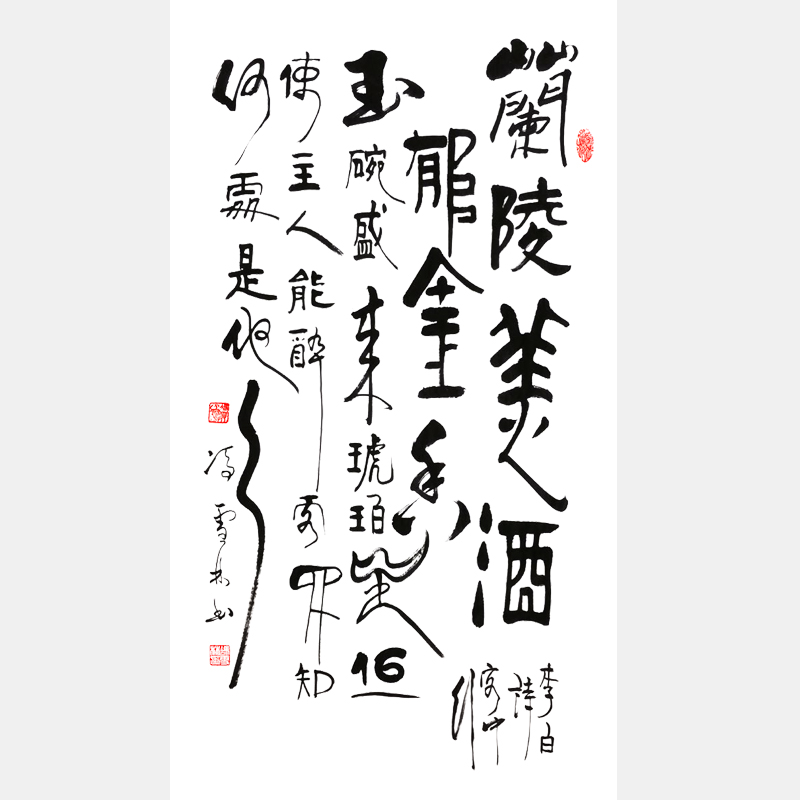 蘭陵美酒
李白
詩
客中
行
郁金香
玉碗盛来琥珀光但
使主人能醉客不知
何處是他鄉
冯雪林书